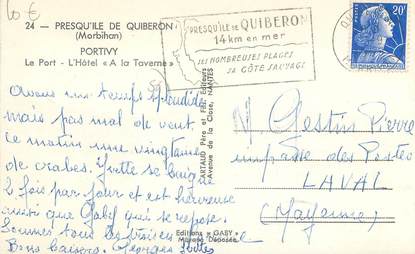 10 €
24 — PRESQU'ILE DE QUIBERON
(Morbihan)
PORTIVY
Le Port - L'Hôtel « A la Taverne »
PRESQU'ILE DE QUIBERON
14 km en mer
SES NOMBREUSES PLAGES
SA CÔTE SAUVAGE
20F
Avons un temps splendide
mais pas mal de vent.
ce matin une vingtaine
de crabes. Yvette se baigne
2 fois par jour et est heureuse
ainsi que Gaby qui se repose.
Sommes tous
Bons baisers. Georges
CARTAUD Père et Fils, Editeurs
Avenue de la Close, NANTES
Editions « GABY »
Marque Déposée
M. Gestin Pierre
impasse des Postes
LAVAL
(Mayenne)